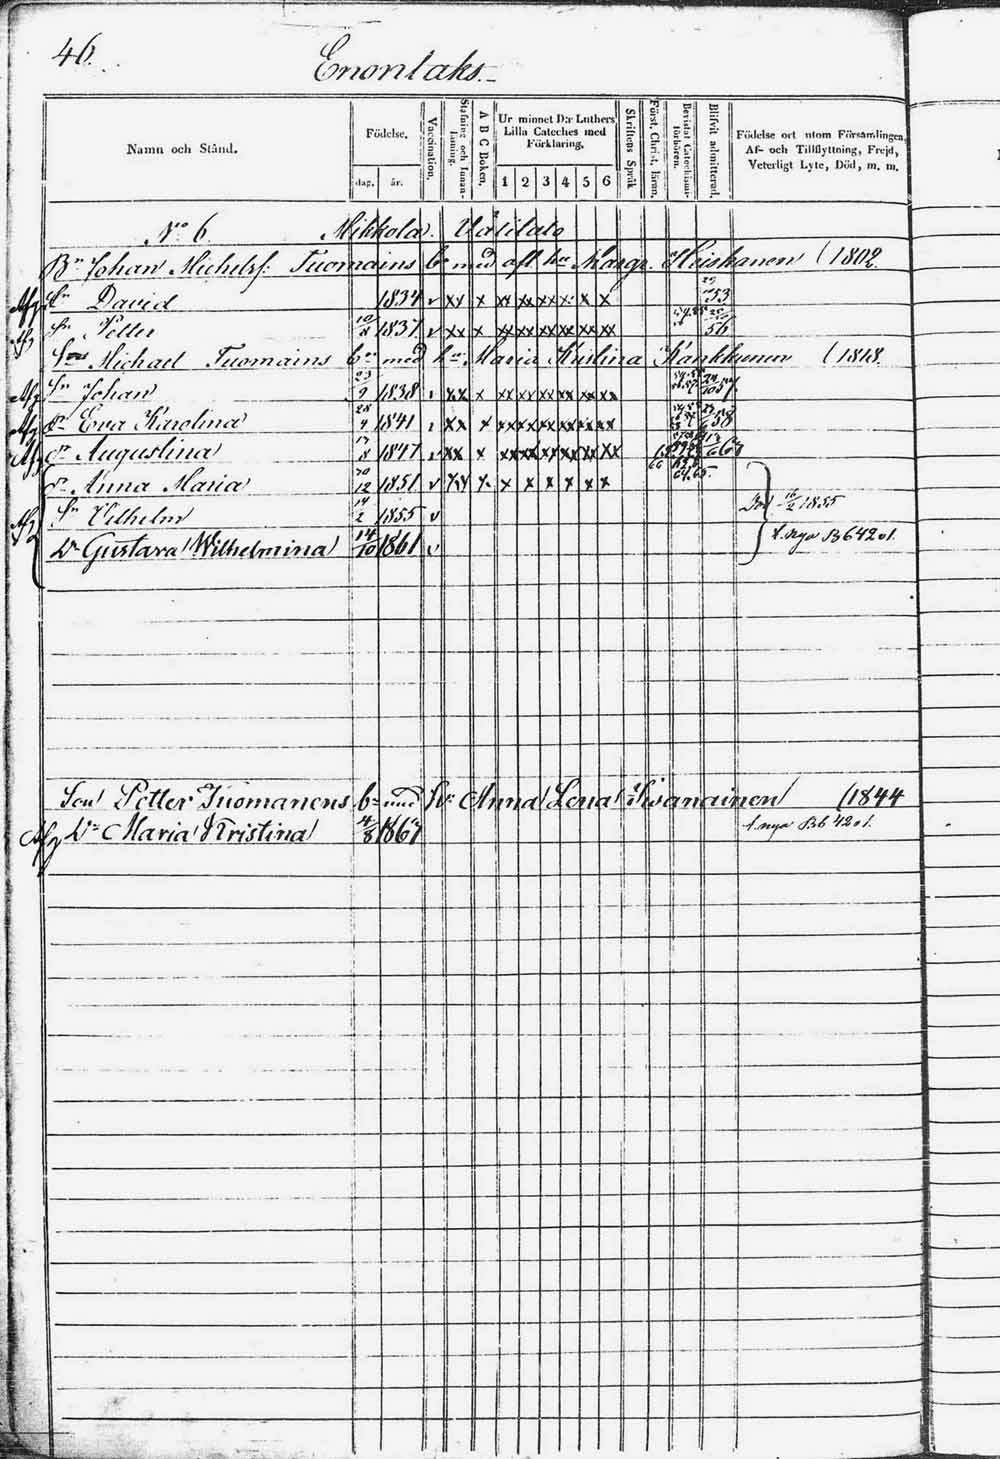 46.
Enonlaks.
Namn och Stånd.
Födelse.
dag.
år.
Vaccination.
Stafning och Innan-läsning.
A B C Boken.
Ur minnet D:r Luthers
Lilla Cateches med
Förklaring.
1 2 3 4 5 6
Skriftens Språk
Först. Christ. lären.
Bevistat Catechismi-förhören.
Blifvit admitterad.
Födelse ort utom Församlingen,
Af- och Tillflyttning, Frejd,
Veterligt Lyte, Död, m. m.
No 6. Mikkola. Välitalo
Bn Johan Michelsf: Tuomainens bn med afl hu Margr. Heiskanen (1802.
Afg Sn David 1834 v xx x xx xx xx x x x 53
Afg Sn Petter 10/8 1837 v xx x xx xx xx xx xx xx 56
Sons Michael Tuomains bn med hu Maria Kristina Kankkunen (1818.
Afg Sn Johan 23/9 1838 xx x xx xx xx xx xx xx 57
Afg Dr Eva Karolina 28 1841 xx x xx xx xx xx xx xx 58
Afg Dr Augustina 17/8 1847 v xx x xx xx xx xx xx xx
Dr Anna Maria 20/12 1851 v x x x x x x
Afg Sn Vilhelm 14/2 1855 v Död 16/2 1855
Dr Gustava Wilhelmina 14/10 1861 v t. nya B 6 42 o 1.
Son Petter Tuomanens bn med hu Anna Lena Iivanainen (1844
Afg Dr Maria Kristina 4/8 1867 t. nya B 6 42 o 1.